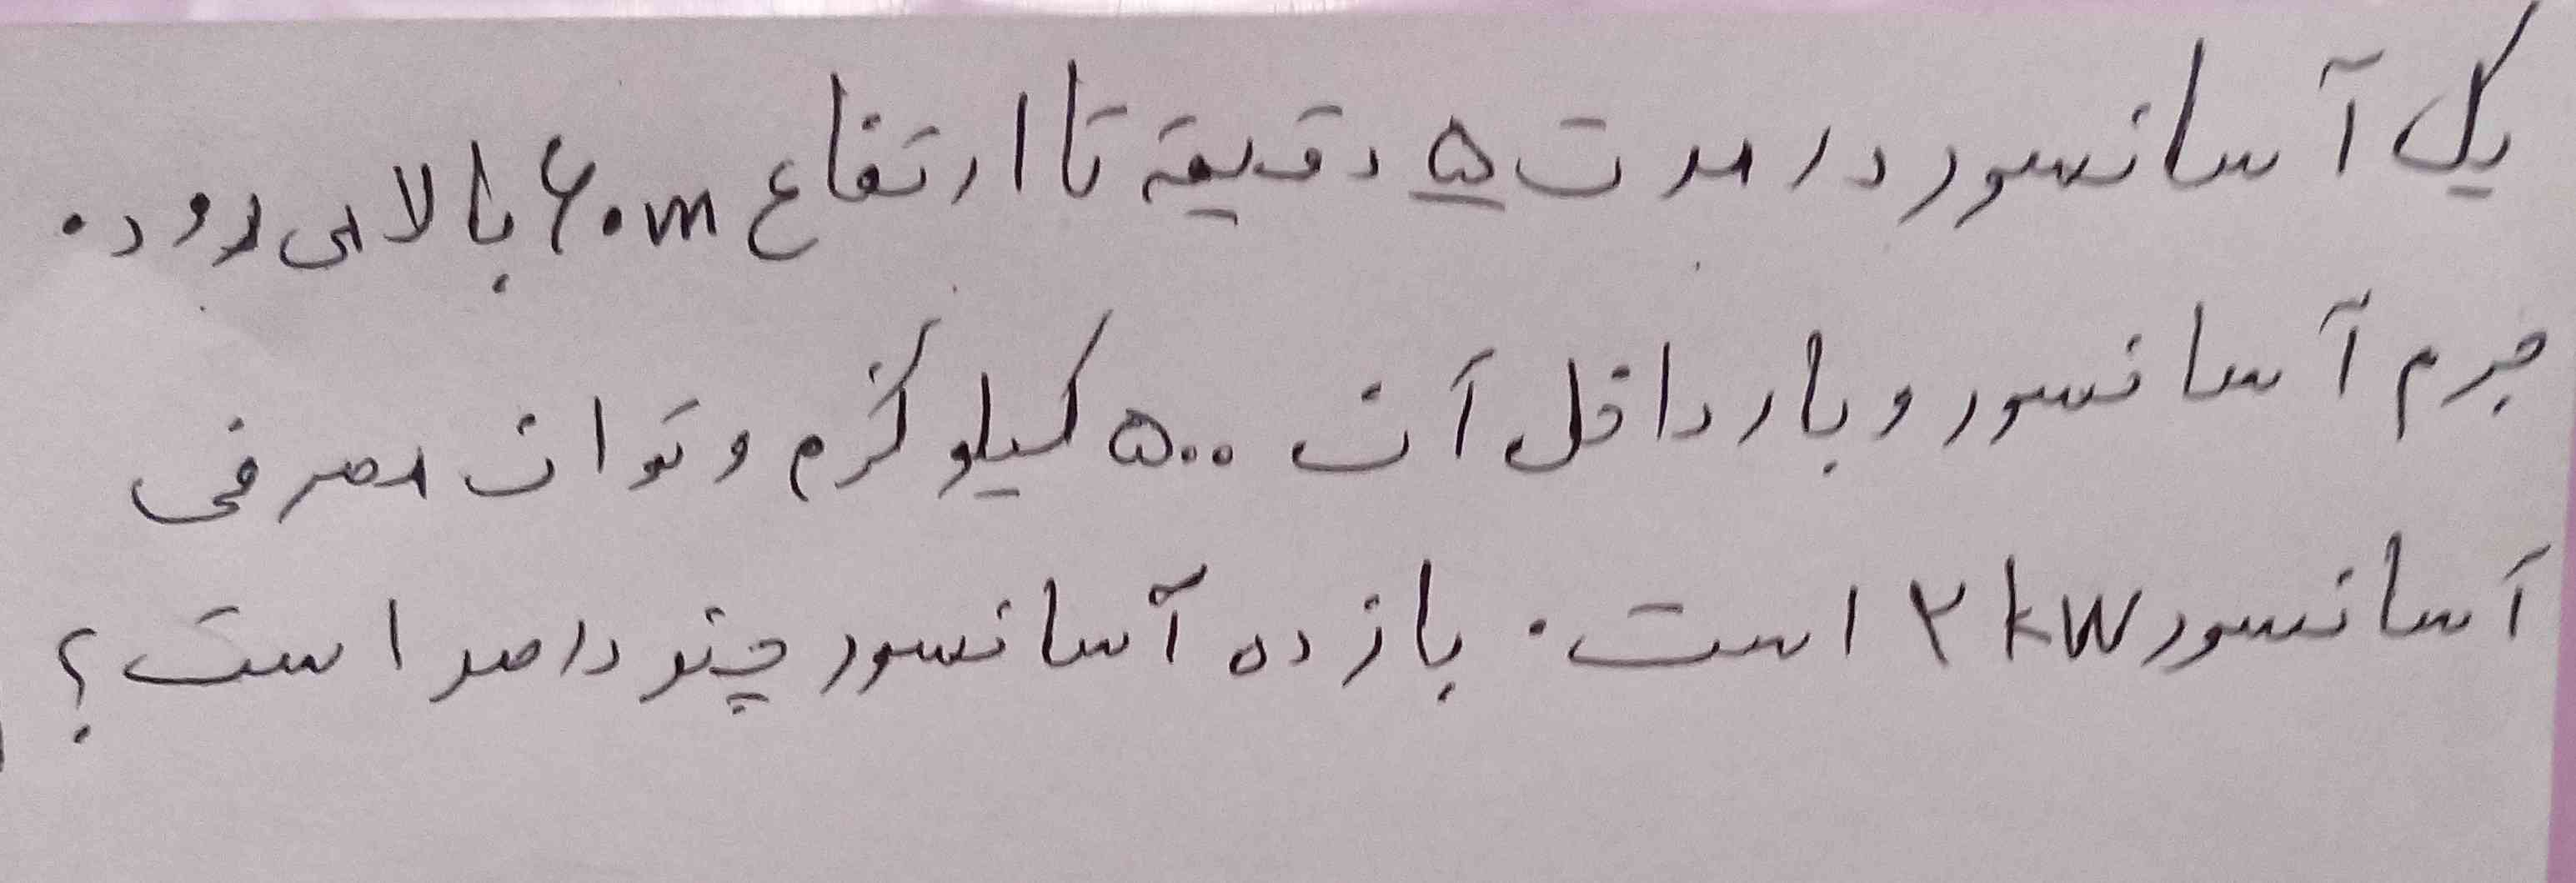 یک آسانسور در مدت ۵ دقیقه تا ارتفاع ۶۰m بالا می رود.
جرم آسانسور و بار داخل آن ۵۰۰ کیلوگرم و توان مصرفی
آسانسور ۲kW است. بازده آسانسور چند درصد است؟